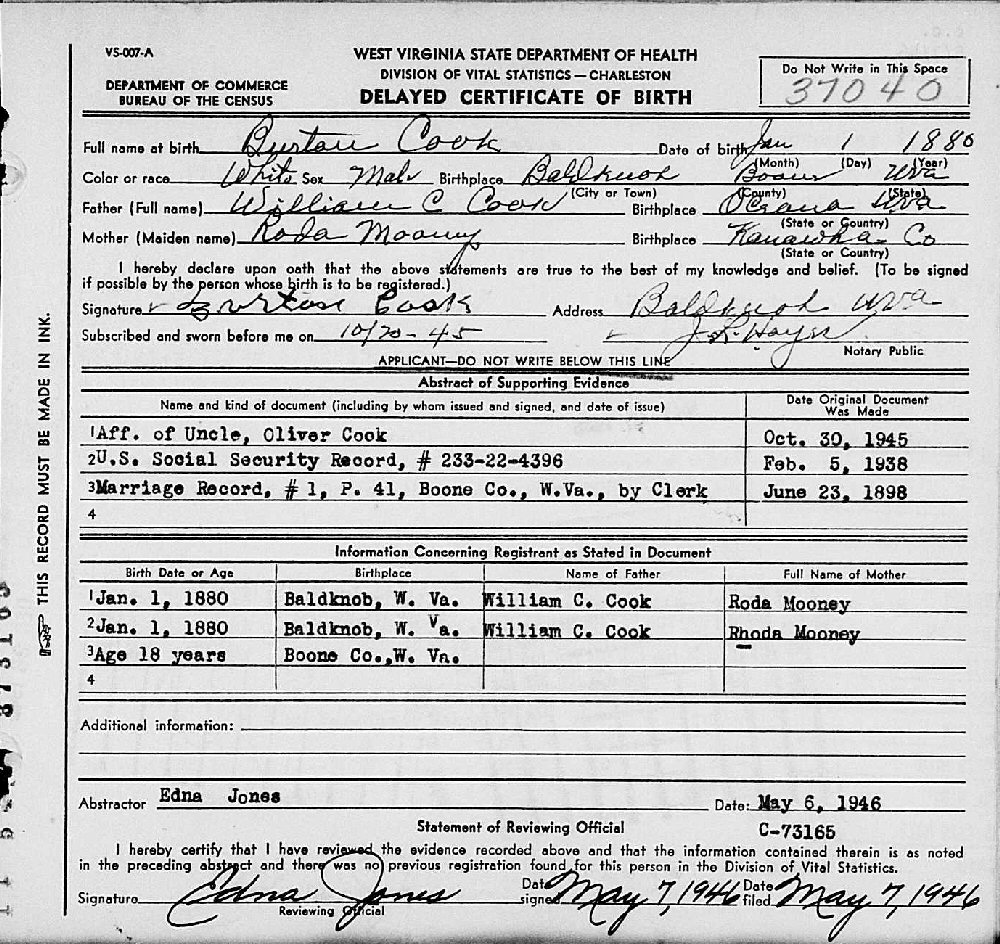 VS-007-A
WEST VIRGINIA STATE DEPARTMENT OF HEALTH
DIVISION OF VITAL STATISTICS — CHARLESTON
DEPARTMENT OF COMMERCE
BUREAU OF THE CENSUS
DELAYED CERTIFICATE OF BIRTH
Do Not Write in This Space
37040
Full name at birth Burton Cook Date of birth Jan 1 1880
(Month) (Day) (Year)
Color or race White Sex Male Birthplace Baldknob Boone WVa
(City or Town) (County) (State)
Father (Full name) William C Cook Birthplace Oceana WVa
(State or Country)
Mother (Maiden name) Roda Mooney Birthplace Kanawha Co
(State or Country)
I hereby declare upon oath that the above statements are true to the best of my knowledge and belief. (To be signed
if possible by the person whose birth is to be registered.)
Signature Burton Cook Address Baldknob WVa
Subscribed and sworn before me on 10/20-45 J. L. Hayes
Notary Public
APPLICANT—DO NOT WRITE BELOW THIS LINE
Abstract of Supporting Evidence
Name and kind of document (including by whom issued and signed, and date of issue) Date Original Document
Was Made
1 Aff. of Uncle, Oliver Cook Oct. 30, 1945
2 U.S. Social Security Record, # 233-22-4396 Feb. 5, 1938
3 Marriage Record, # 1, P. 41, Boone Co., W.Va., by Clerk June 23, 1898
4
Information Concerning Registrant as Stated in Document
Birth Date or Age Birthplace Name of Father Full Name of Mother
1 Jan. 1, 1880 Baldknob, W. Va. William C. Cook Roda Mooney
2 Jan. 1, 1880 Baldknob, W. Va. William C. Cook Rhoda Mooney
3 Age 18 years Boone Co.,W. Va.
4
Additional information:
Abstractor Edna Jones Date: May 6, 1946
Statement of Reviewing Official C-73165
I hereby certify that I have reviewed the evidence recorded above and that the information contained therein is as noted
in the preceding abstract and there was no previous registration found for this person in the Division of Vital Statistics.
Signature Edna Jones Date signed May 7, 1946 Date filed May 7, 1946
Reviewing Official
THIS RECORD MUST BE MADE IN INK.